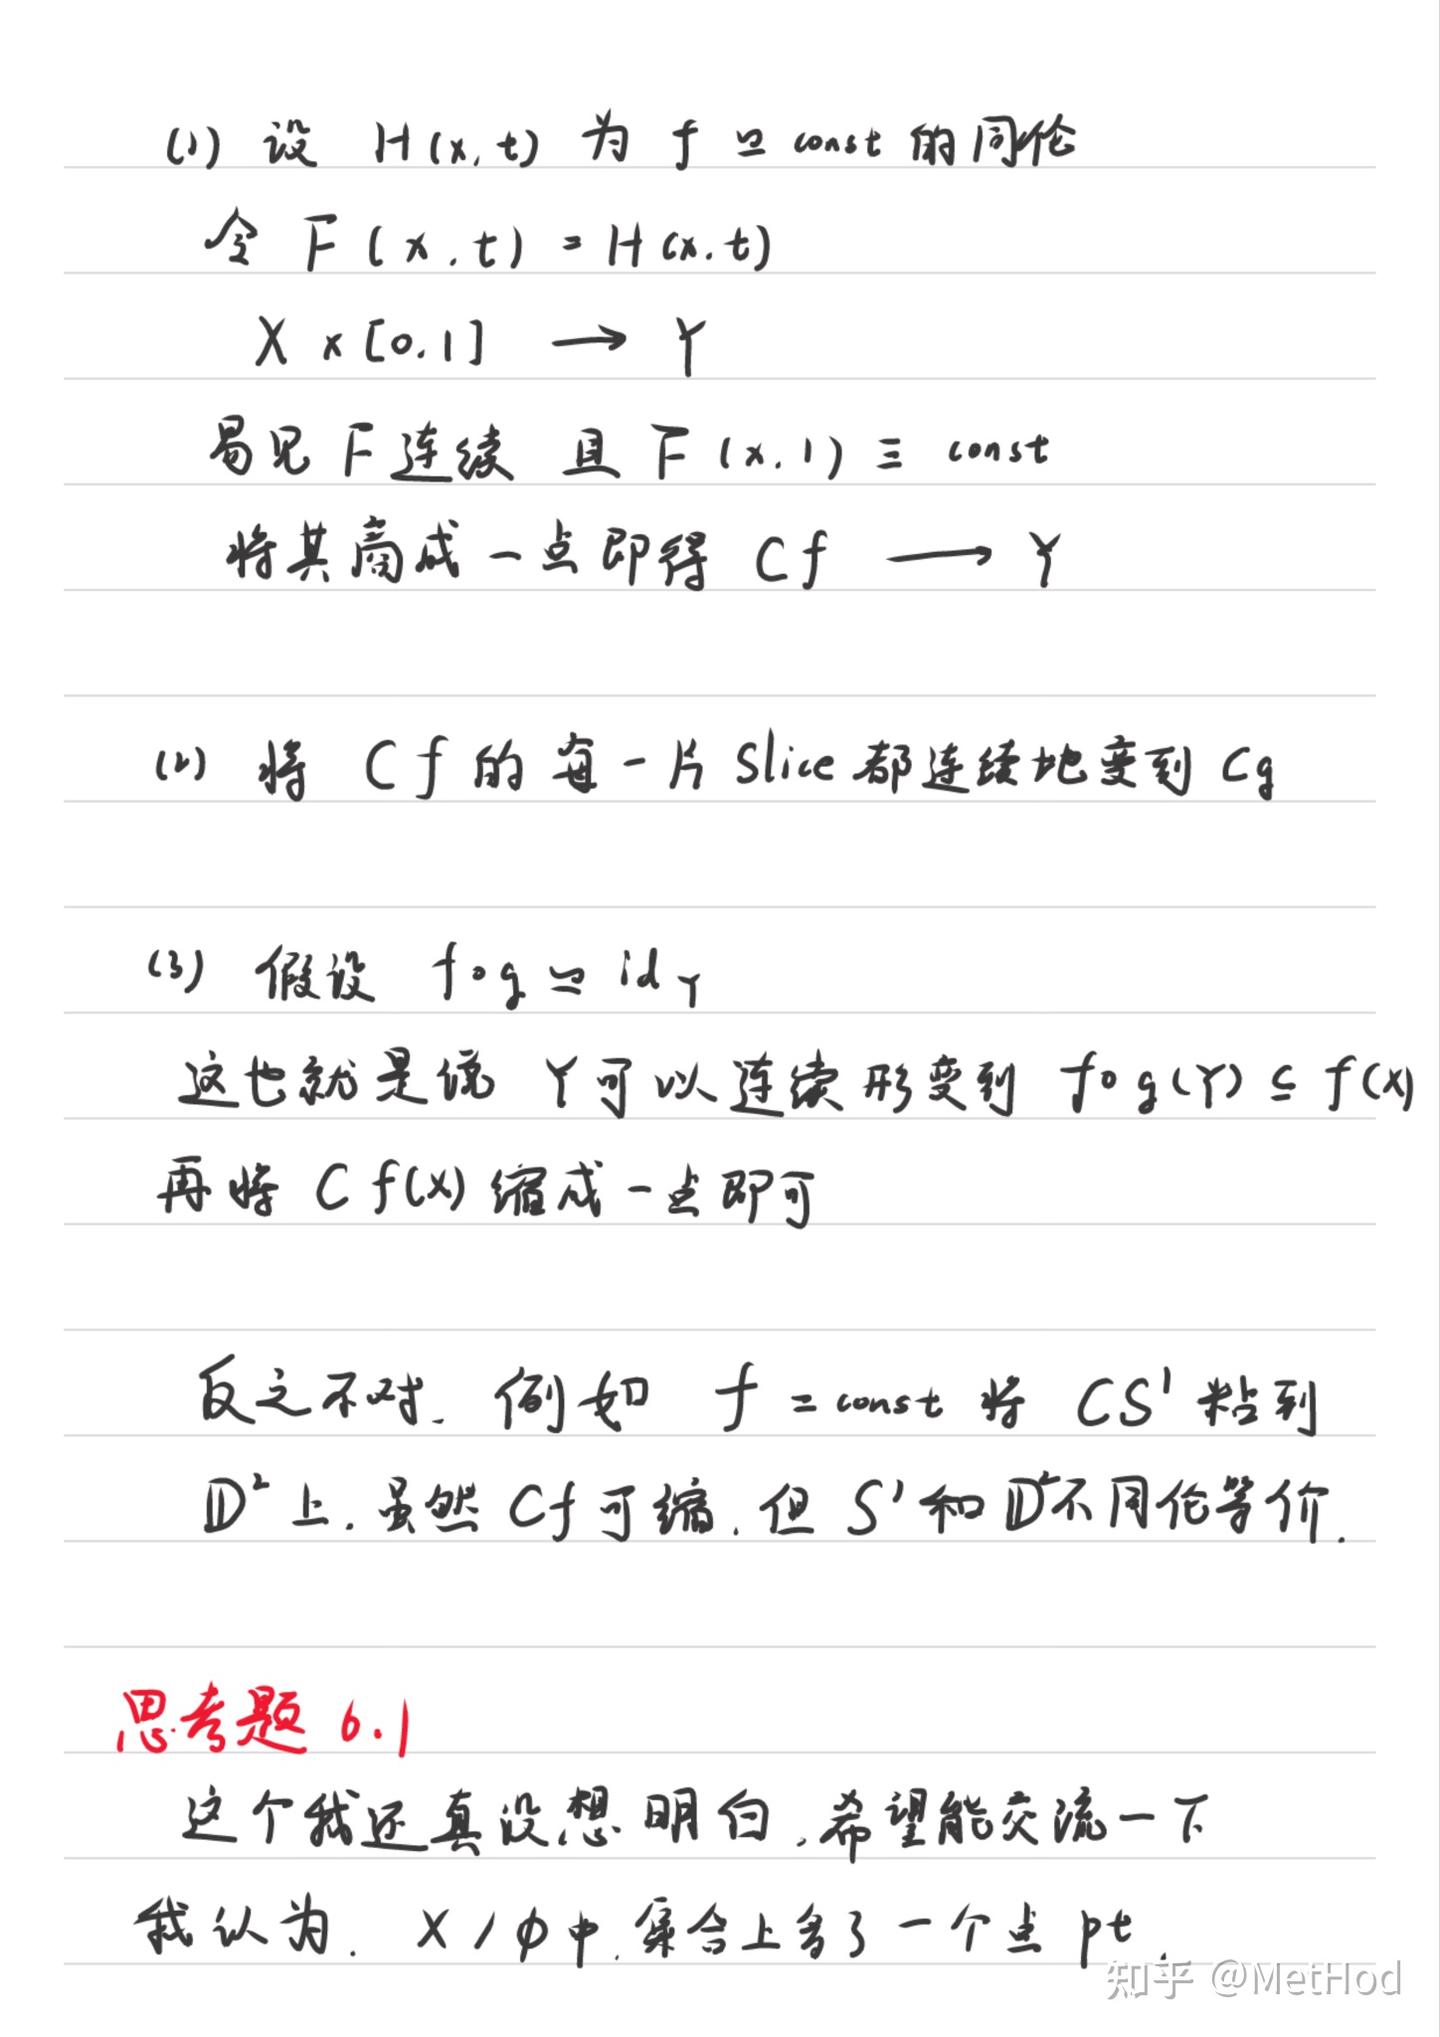 (1) 设 H(x,t) 为 f ≃ const 的同伦
令 F(x,t) = H(x,t)
X × [0,1] → Y
易见 F 连续 且 F(x,1) ≡ const
将其商成一点即得 Cf → Y
(2) 将 Cf 的每一片 Slice 都连续地变到 Cg
(3) 假设 f∘g ≃ id_Y
这也就是说 Y可以连续形变到 f∘g(Y) ⊆ f(X)
再将 C f(X) 缩成一点即可
反之不对. 例如 f = const 将 CS¹ 粘到
𝔻² 上. 虽然 Cf 可缩. 但 S¹ 和 𝔻² 不同伦等价.
思考题 6.1
这个我还真没想明白,希望能交流一下
我认为. X/∅中.集合上多了一个点 pt.
知乎 @MetHod